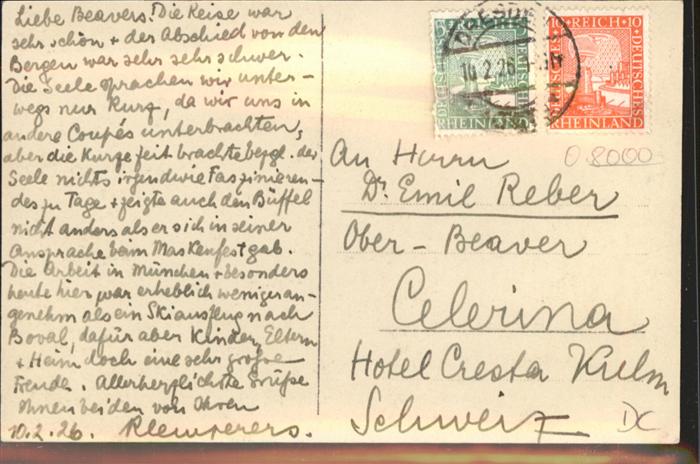 Liebe Beavers. Die Reise war
sehr schön + der Abschied von den
Bergen war sehr sehr schwer.
Die Seele sprachen wir unter-
wegs nur kurz, da wir uns in
andere Coupés unterbrachten,
aber die kurze Zeit brachte bezgl. der
Seele nichts irgendwie Faszinieren-
des zu Tage + zeigte auch den Büffel
nicht anders als er sich in seiner
Ansprache beim Maskenfest gab.
Die Arbeit in München + besonders
heute hier war erheblich weniger an-
genehm als ein Skiausflug nach
Boval, dafür aber Kinder, Eltern
+ Heim doch eine sehr grosse
Freude. Allerherzlichste Grüße
Ihnen beiden von Ihren
10.2.26. Klemperers.
DRESDEN
10.2.26
5 DEUTSCHES REICH 5
RHEINLAND
10 REICH 10
DEUTSCHES
RHEINLAND
0.8000
An Herrn
Dr. Emil Reber
Ober-Beaver
Celerina
Hotel Cresta Kulm
Schweiz
DC